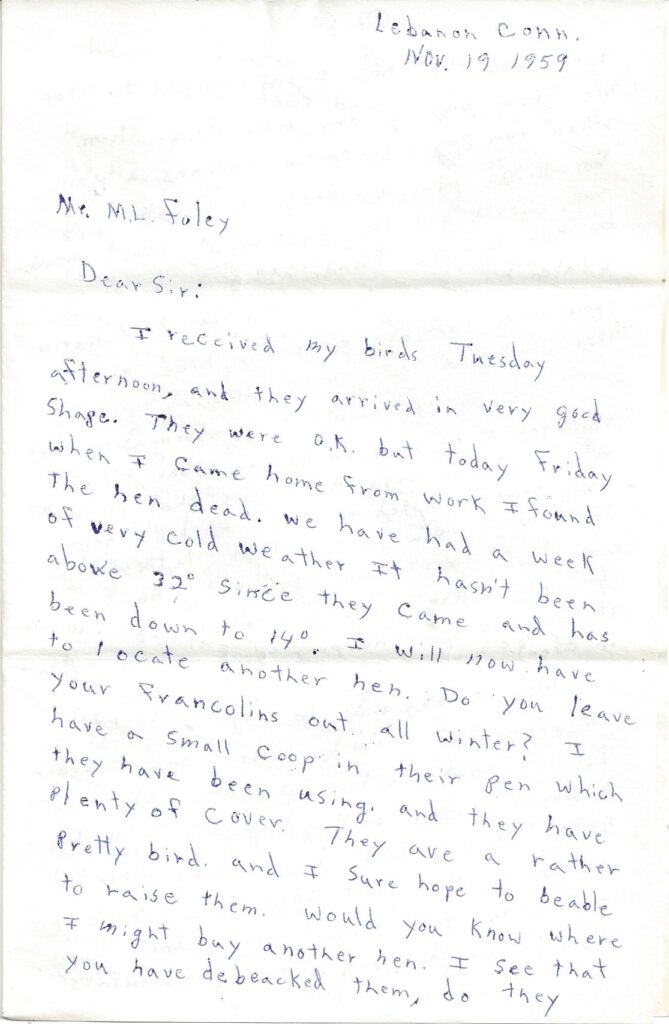 Lebanon Conn.
Nov. 19 1959
Mr. M.L. Foley
Dear Sir:
I received my birds Tuesday
afternoon, and they arrived in very good
Shape. They were O.K. but today Friday
when I came home from work I found
The hen dead. we have had a week
of very cold weather It hasn't been
above 32° since they came and has
been down to 14°. I will now have
to locate another hen. Do you leave
your Francolins out all winter? I
have a small coop in their pen which
they have been using. and they have
plenty of cover. They are a rather
pretty bird. and I sure hope to beable
to raise them. would you know where
I might buy another hen. I see that
you have debeacked them, do they